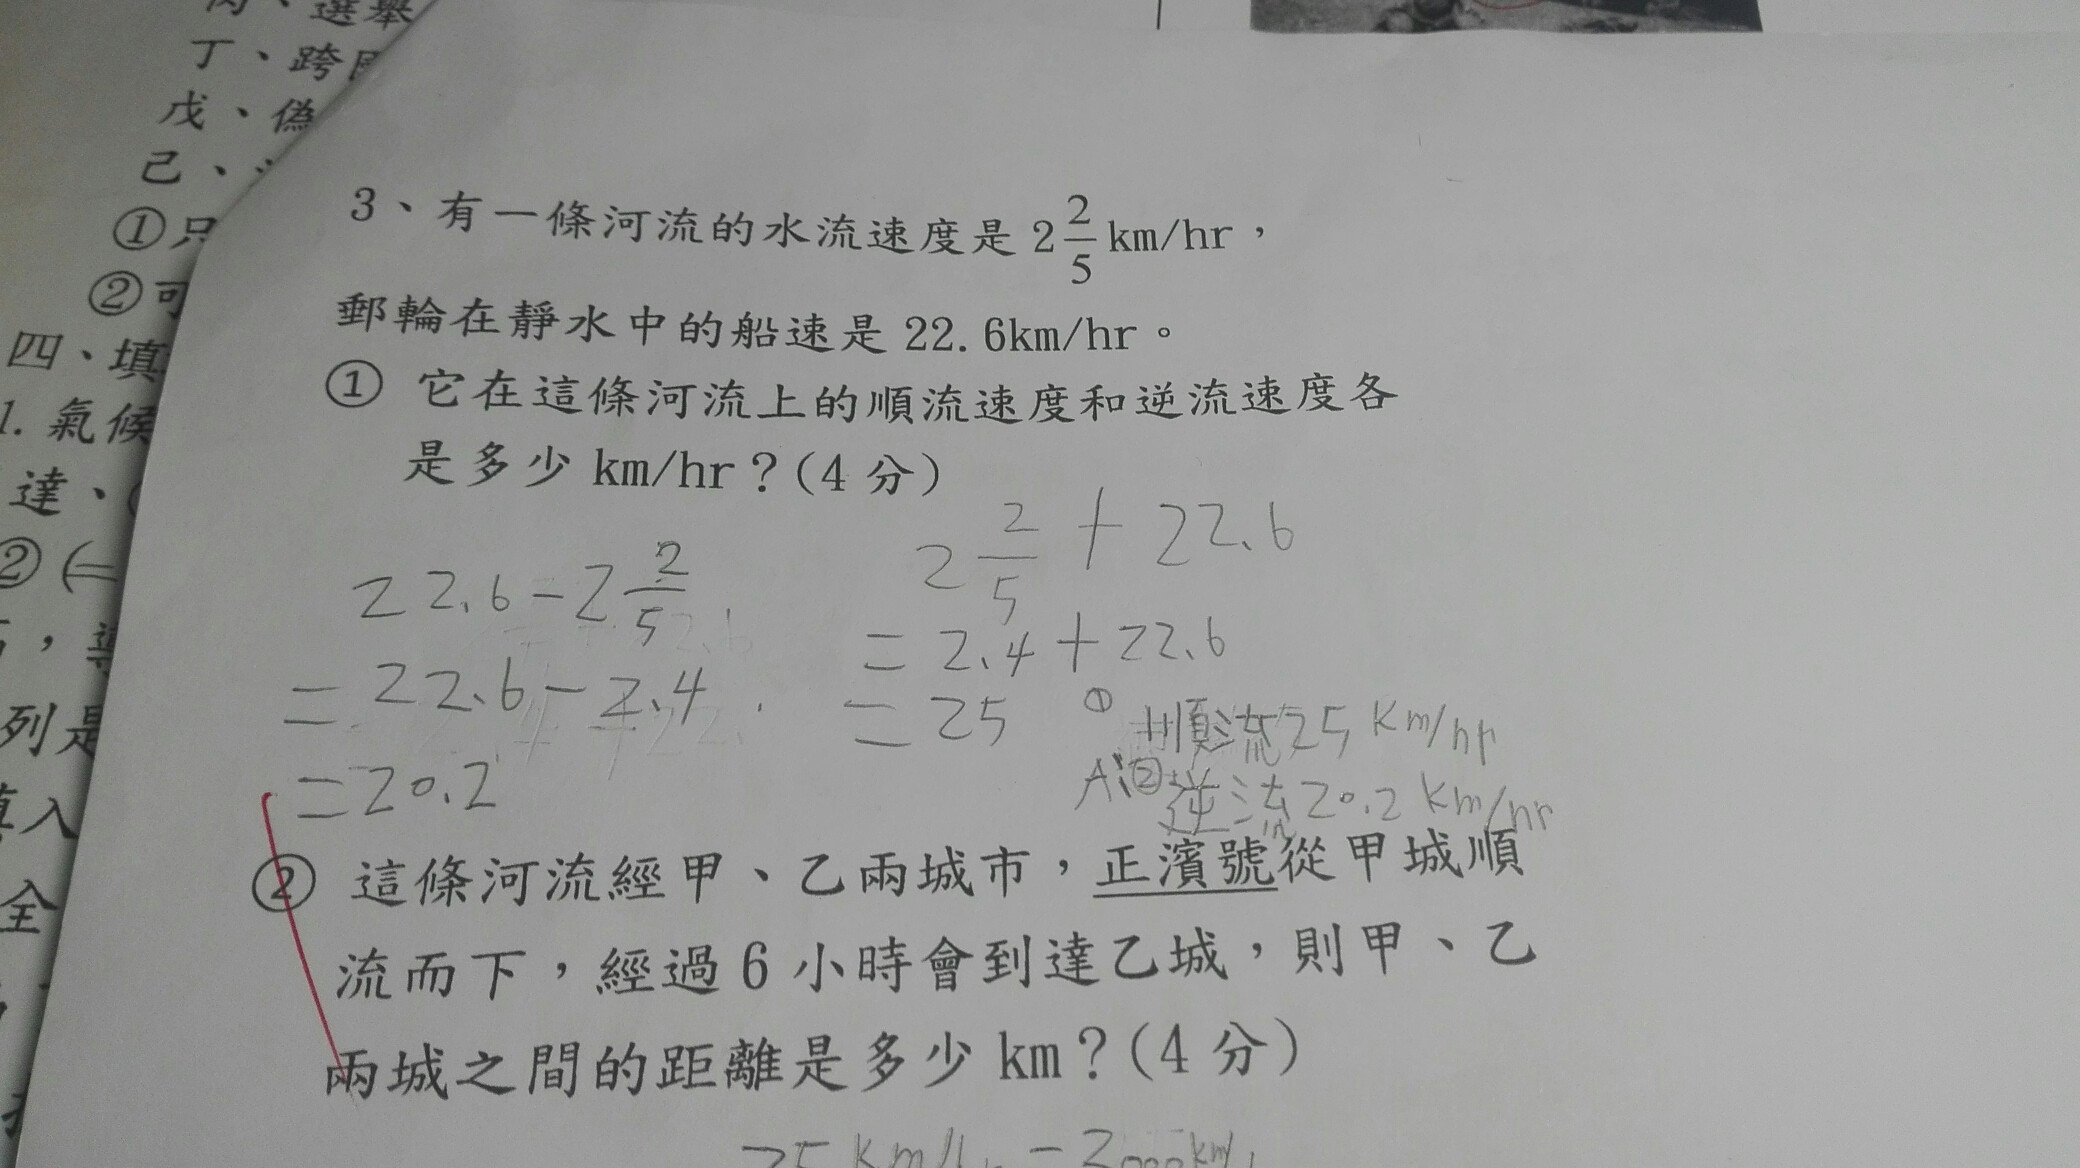 丙、選舉
丁、跨
戊、偽
己、
①只
②可
四、填
1.氣候
達、
②(
列是
入
全
3、有一條河流的水流速度是 2 2/5 km/hr，
郵輪在靜水中的船速是 22.6km/hr。
① 它在這條河流上的順流速度和逆流速度各
是多少 km/hr？(4 分)
22.6-2 2/5
=22.6-2.4
=20.2
2 2/5 + 22.6
=2.4+22.6
=25
① 順流25 Km/hr
A:② 逆流20.2 Km/hr
② 這條河流經甲、乙兩城市，正濱號從甲城順
流而下，經過 6 小時會到達乙城，則甲、乙
兩城之間的距離是多少 km？(4 分)